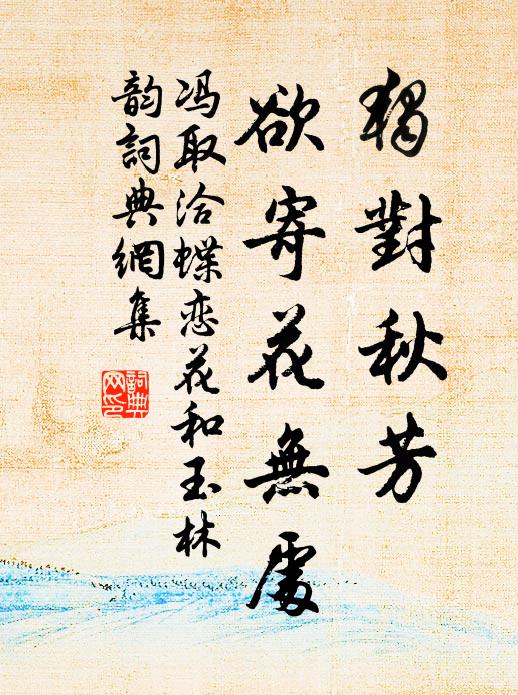 獨對秋芳
欲寄花無處
冯取洽蝶恋花和玉林
韵詞典網集
詞典
网印